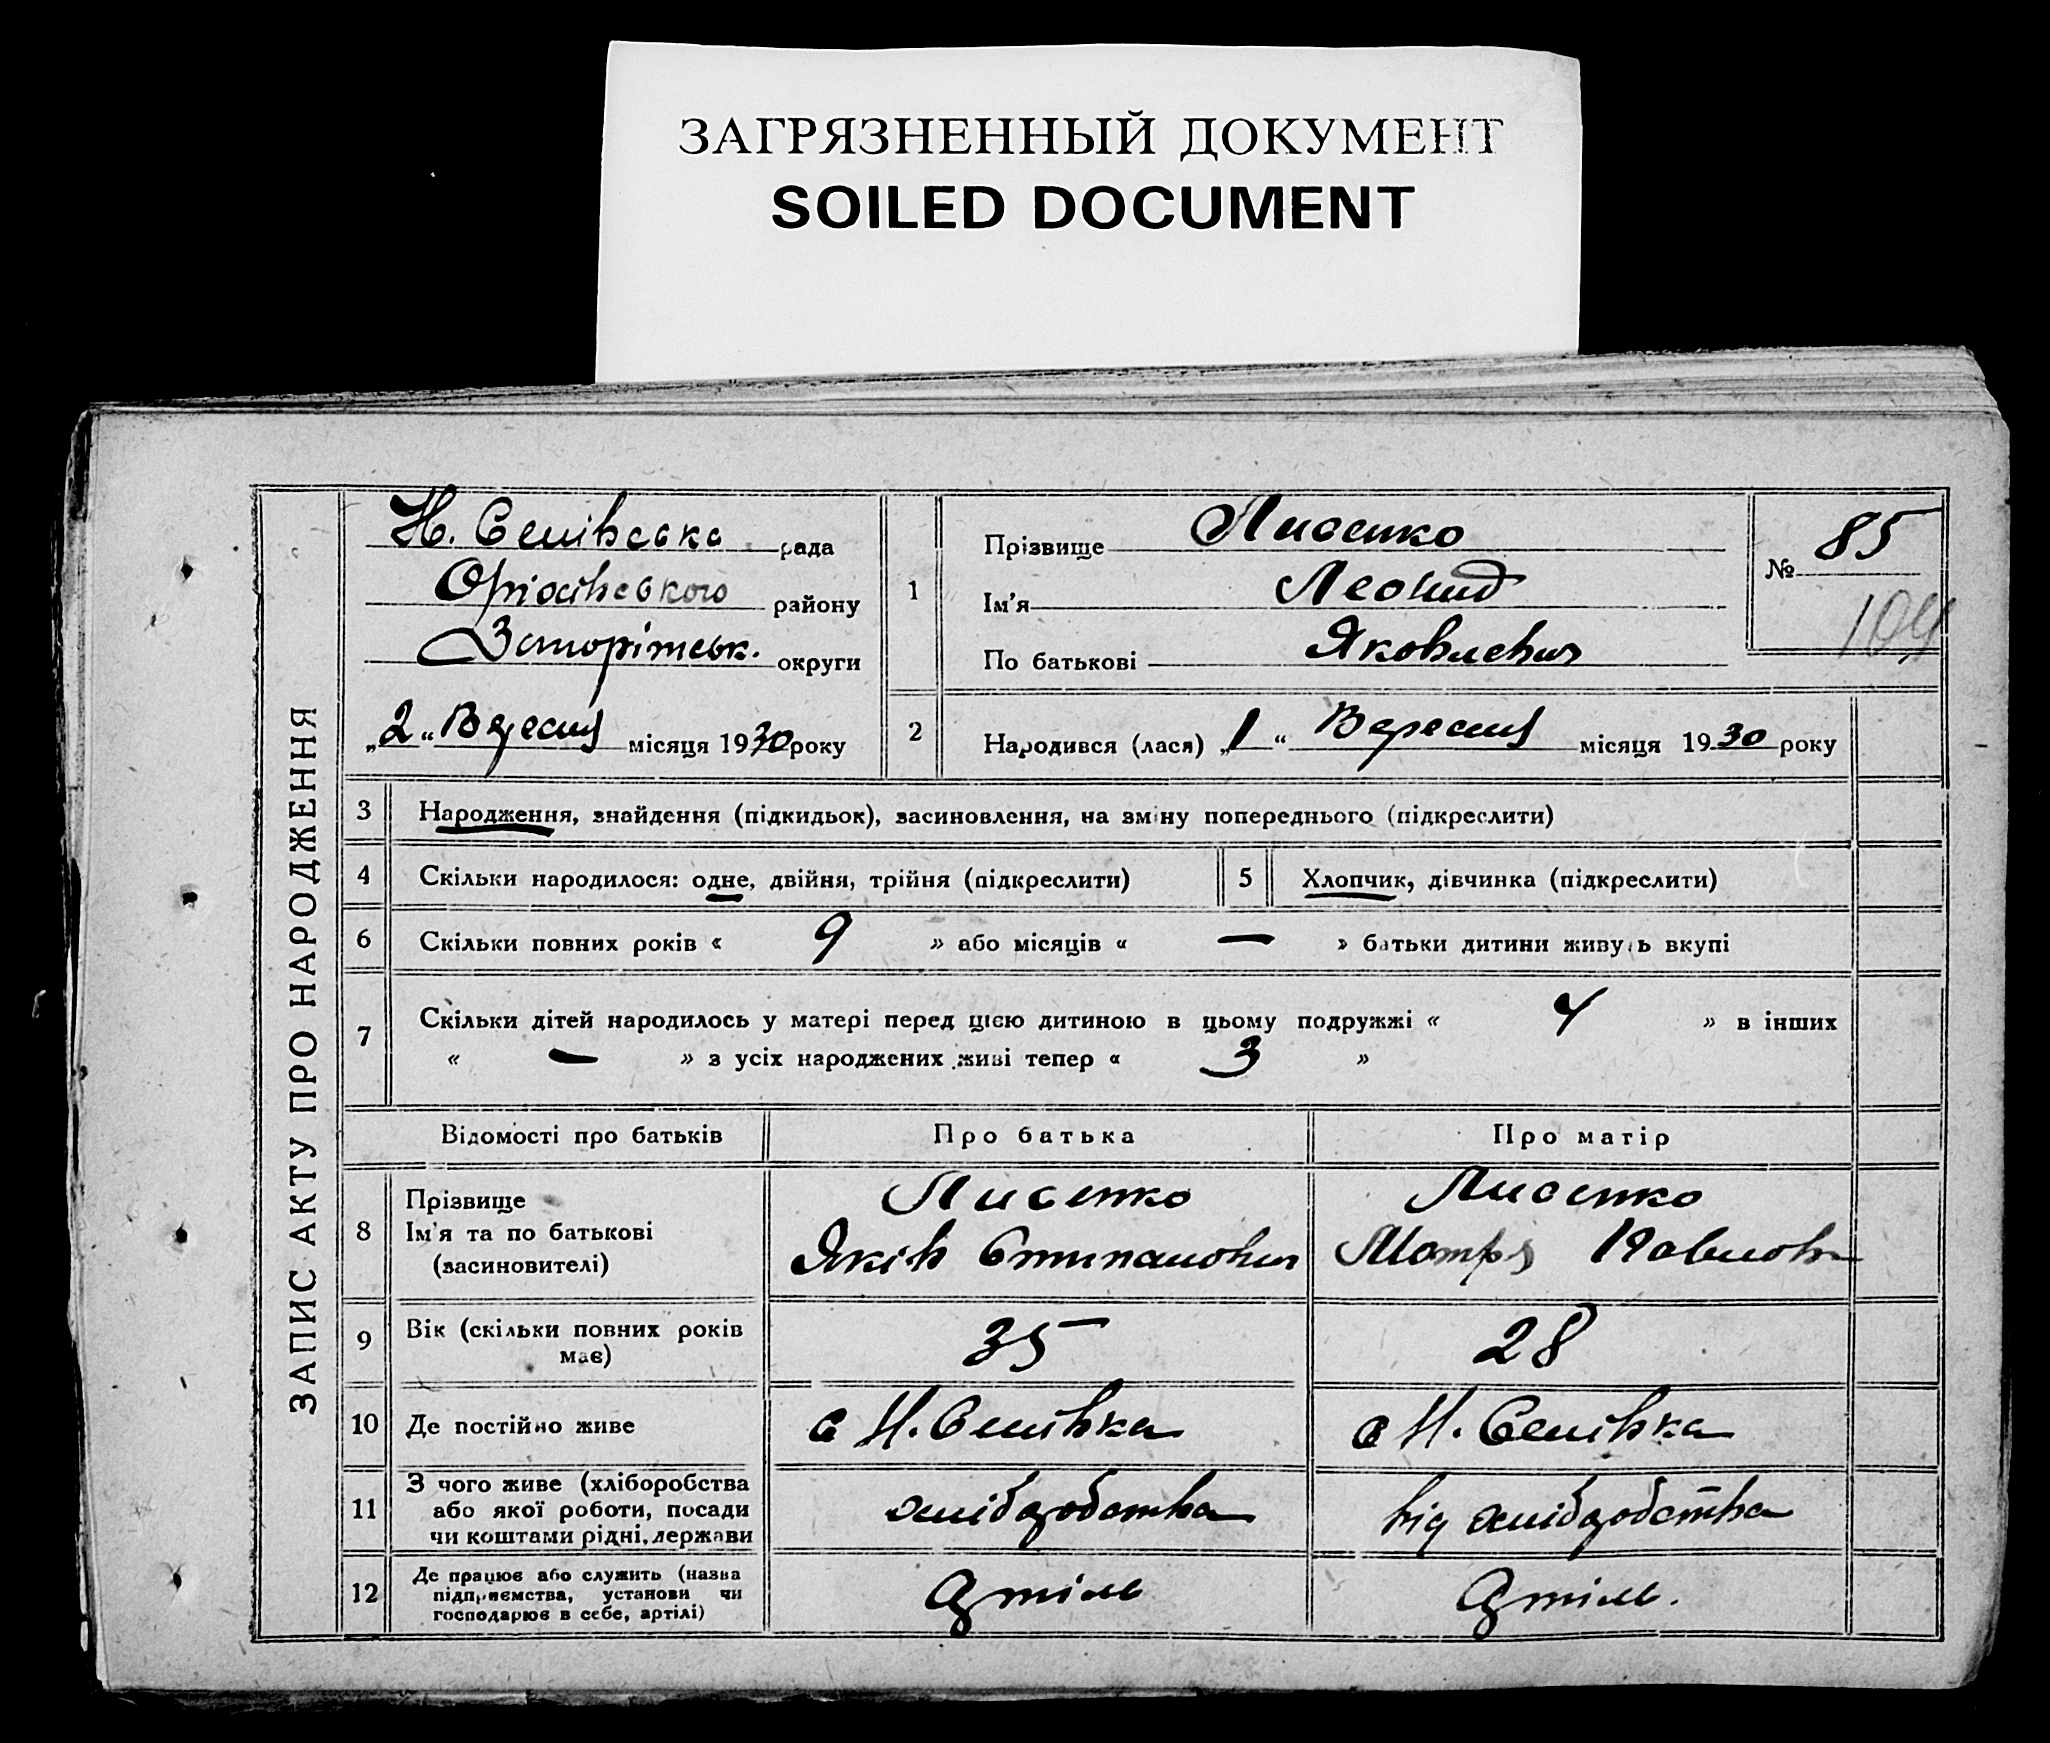 ЗАГРЯЗНЕННЫЙ ДОКУМЕНТ
SOILED DOCUMENT
ЗАПИС АКТУ ПРО НАРОДЖЕННЯ
рада
Оріхівського району
Запоріжськ. округи
„2“ Вересня місяця 1930 року
1
Прізвище Лисенко
Ім'я Леонид
По батькові Яковлевич
№ 85
109
2
Народився (лася) „1“ Вересня місяця 1930 року
3 Народження, знайдення (підкидьок), засиновлення, на зміну попереднього (підкреслити)
4 Скільки народилося: одне, двійня, трійня (підкреслити)
5 Хлопчик, дівчинка (підкреслити)
6 Скільки повних років « 9 » або місяців « — » батьки дитини живуть вкупі
7 Скільки дітей народилось у матері перед цією дитиною в цьому подружжі « 4 » в інших
« — » з усіх народжених живі тепер « 3 »
Відомості про батьків
Про батька
Про матір
8 Прізвище
Ім'я та по батькові
(засиновителі)
Лисенко
Яків Степанович
Лисенко
Мотря Павловн
9 Вік (скільки повних років
має)
35
28
10 Де постійно живе
с Н. Семівка
с Н. Семівка
11 З чого живе (хліборобства
або якої роботи, посади
чи коштами рідні, держави
хліборобства
від хліборобства
12 Де працює або служить (назва
підприємства, установи чи
господарює в себе, артілі)
Артіль
Артіль.